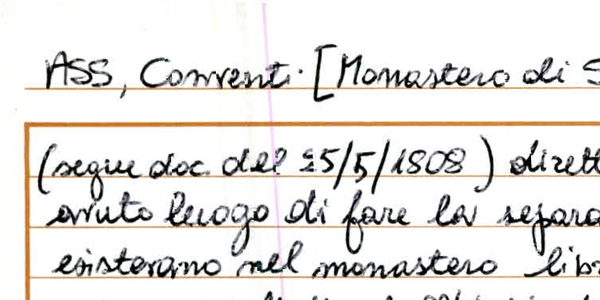 ASS, Conventi. [Monastero di S
(segue doc. del 25/5/1808) dirett
avuto luogo di fare la separa
esisterano nel monastero libr